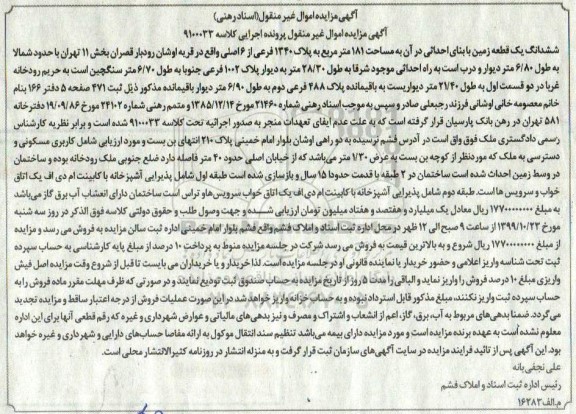 آگهی مزایده اموال غیر منقول(اسناد رهنی)
آگهی مزایده اموال غیر منقول پرونده اجرایی کلاسه ۹۱۰۰۰۳۳
ششدانگ یک قطعه زمین با بنای احداثی در آن به مساحت ۱۸۱ متر مربع به پلاک ۱۳۴۰ فرعی از ۶ اصلی واقع در قریه اوشان رودبار قصران بخش ۱۱ تهران با حدود شمالا
به طول ۶/۸۰ متر دیوار و درب است به راه احداثی موجود شرقا به طول ۲۸/۳۰ متر به دیوار پلاک ۱۰۰۲ فرعی جنوبا به طول ۶/۷۰ متر سنگچین است به حریم رودخانه
غربا در دو قسمت اول به طول ۲۱/۴۰ متر دیواریست به باقیمانده پلاک ۴۸۸ فرعی دوم به طول ۶/۹۰ متر دیوار باقیمانده مذکور ذیل ثبت ۴۷۱ صفحه ۵ دفتر ۱۶۶ بنام
خانم معصومه خانی اوشانی فرزند رجبعلی صادر و سپس به موجب اسناد رهنی شماره ۲۱۴۶۰ مورخ ۱۳۸۵/۱۲/۱۴ و متمم رهنی شماره ۲۴۱۰۲ مورخ ۱۹/۰۹/۸۶ دفترخانه
۵۸۱ تهران در رهن بانک پارسیان قرار گرفته است که به علت عدم ایفای تعهدات منجر به صدور اجرائیه تحت کلاسه ۹۱۰۰۰۳۳ شده است و برابر نظر به کارشناس
رسمی دادگستری ملک فوق واق است در آدرس فشم نرسیده به دو راهی اوشان بلوار امام خمینی پلاک ۲۱۰ انتهای بن بست و مورد ارزیابی شامل کاربری مسکونی و
دسترسی به ملک که موردنظر از کوچه بن بست به عرض ۱/۳۰ متر می‌باشد که از خیابان اصلی حدود ۴۰ متر فاصله دارد ضلع جنوبی ملک رودخانه بوده و ساختمان
در وسط زمین احداث شده است ساختمان در ۲ طبقه با قدمت حدود ۱۵ سال و بازسازی شده است طبقه اول شامل پذیرایی آشپزخانه با کابینت ام دی اف یک اتاق
خواب و سرویس ها است. طبقه دوم شامل پذیرایی آشپزخانه با کابینت ام دی اف یک اتاق خواب سرویس‌ها و تراس است ساختمان دارای انعشاب آب برق گاز می‌باشد
به مبلغ ۱۷۷۰۰۰۰۰۰۰۰ ریال معادل یک میلیارد و هفتصد و هفتاد میلیون تومان ارزیابی شده و جهت وصول طلب و حقوق دولتی کلاسه فوق الذکر در روز سه شنبه
مورخ ۱۳۹۹/۱۰/۲۳ از ساعت ۹ صبح الی ۱۲ ظهر در محل اداره ثبت اسناد و املاک فشم واقع فشم بلوار امام خمینی اداره ثبت سالن مزایده به فروش می رسد و مزایده
از مبلغ ۱۷۷۰۰۰۰۰۰۰۰ ریال شروع و به بالاترین قیمت به فروش می رسد شرکت در جلسه مزایده منوط به پرداخت ۱۰ درصد از مبلغ پایه کارشناسی به حساب سپرده
ثبت تحت شناسه واریز اعلامی و حضور خریدار یا نماینده قانونی او در جلسه مزایده است. لذا خریدار و یا خریداران می بایست تا قبل از شروع وقت مزایده اصل فیش
واریزی مبلغ ۱۰ درصد فروش را واریز نماید و الباقی را مدت ۵ روز از تاریخ مزایده به حساب صندوق ثبت تودیع نمایند و در صورتی که ظرف مهلت مقرر ماده فروش را به
حساب سپرده ثبت واریز نکنند، مبلغ مذکور قابل استرداد نبوده و به حساب خزانه واریز خواهد شد در این صورت عملیات فروش از درجه اعتبار ساقط و مزایده تجدید
می گردد. ضمنا بدهی‌های مربوط به آب، برق، گاز، اعم از انشعاب و اشتراک و مصرف و نیز بدهی‌های مالیاتی و عوارض شهرداری و غیره که رقم قطعی آنها برای این اداره
معلوم نشده است به عهده برنده مزایده است و مورد مزایده دارای بیمه می‌باشد تنظیم سند انتقال موکول به ارائه مفاصا حساب‌های دارایی و شهرداری و غیره خواهد
بود. این آگهی پس از تائید فرایند مزایده در سایت آگهی‌های سازمان ثبت قرار گرفت و به منزله انتشار در روزنامه کثیرالانتشار محلی است.
علی نجفی بانه
رئیس اداره ثبت اسناد و املاک فشم
م.الف ۱۶۲۸۳